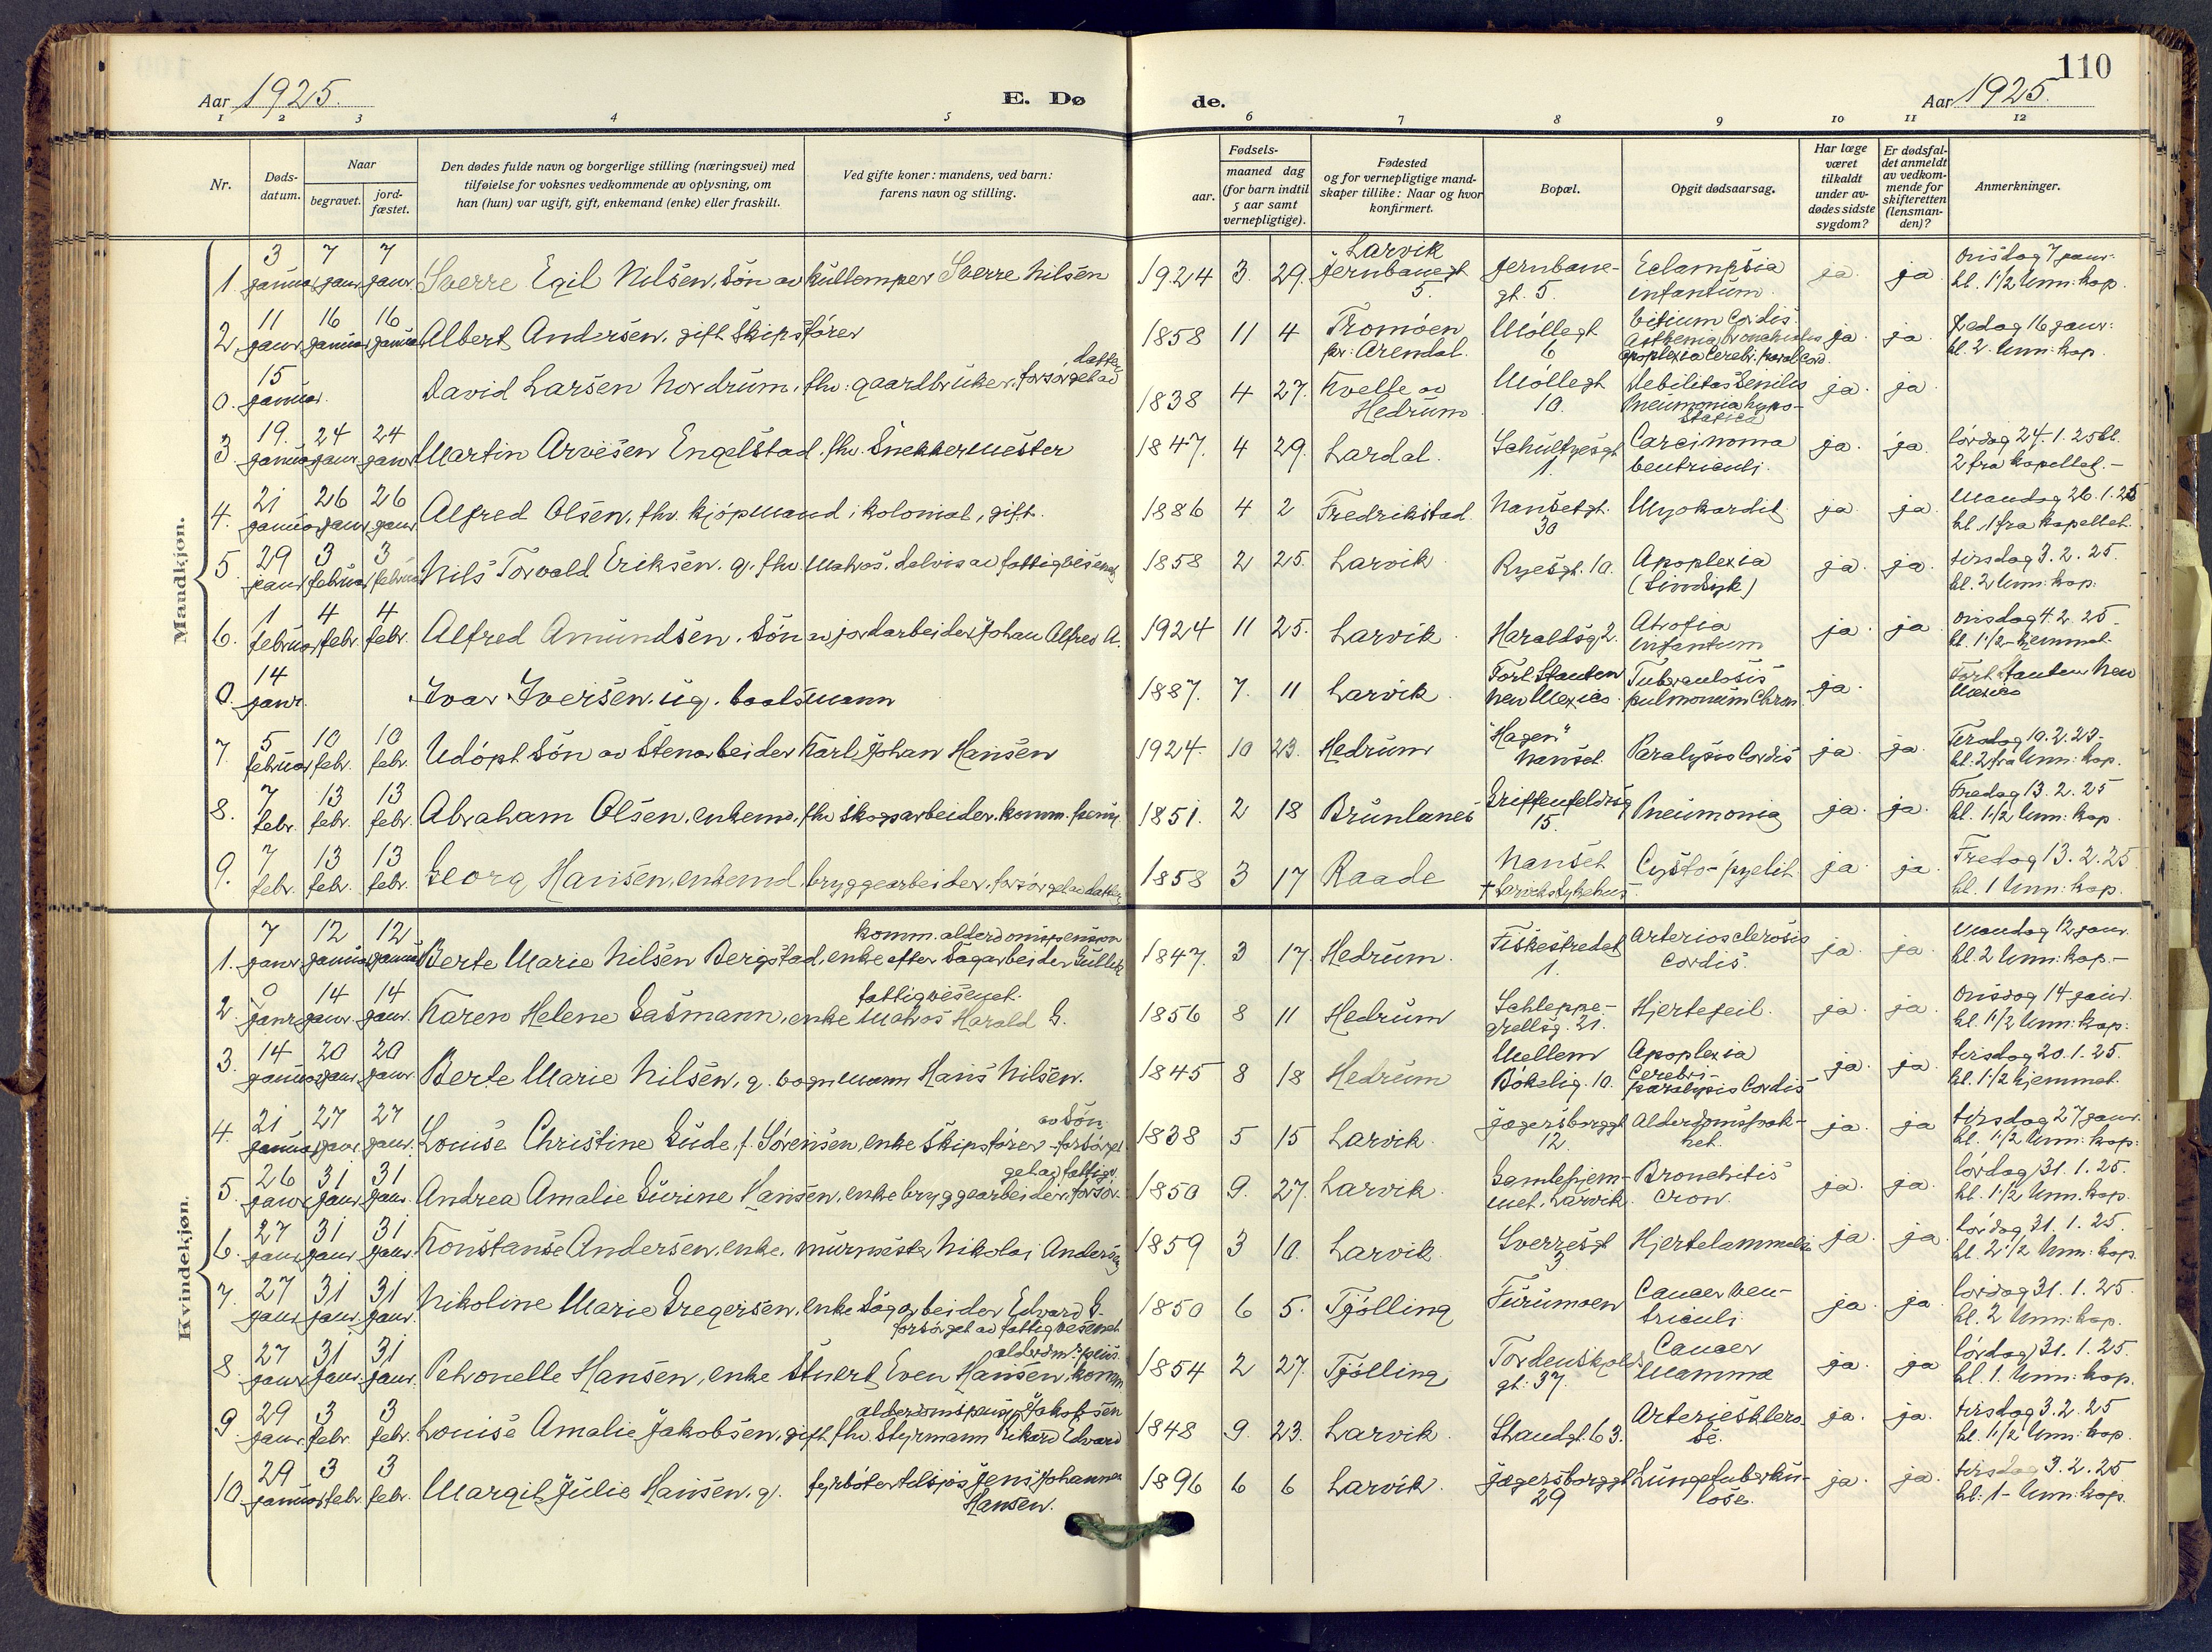 110
Aar 1925.
E. Dø
de.
Aar 1925.
1 2 3 4 5 6 7 8 9 10 11 12
Nr.
Døds-
datum.
Naar
begravet.
jord-
fæstet.
Den dødes fulde navn og borgerlige stilling (næringsvei) med
tilføielse for voksnes vedkommende av oplysning, om
han (hun) var ugift, gift, enkemand (enke) eller fraskilt.
Ved gifte koner: mandens, ved barn:
farens navn og stilling.
Fødsels-
aar.
maaned dag
(for barn indtil
5 aar samt
vernepligtige).
Fødested
og for vernepligtige mand-
skaper tillike: Naar og hvor
konfirmert.
Bopæl.
Opgit dødsaarsag.
Har læge
været
tilkaldt
under av-
dødes sidste
sygdom?
Er dødsfal-
det anmeldt
av vedkom-
mende for
skifteretten
(lensman-
den)?
Anmerkninger.
Mandkjøn.
1. 3 januar 7 janr. 7 janr. Sverre Egil Nilsen, søn av kullemper Sverre Nilsen 1924 3. 29. Larvik Jernbanegt 5. Jernbane-gt. 5. Eclampsia infantum ja. ja onsdag 7 janr. kl. 1 1/2 Unn: kap.
2. 11 janr. 16 januar 16 januar Albert Andersen, gift skipsfører 1858 11 4 Tromøen pr: Arendal. Møllegt 6 Vitium Cordis. Asthenia bronchialis apoplexia cerebr. paral. cord. ja. ja. Fredag 16 janr: kl. 2. Unn: kap.
0. 15 januar. David Larsen Nordrum, fhv: gaardbruker, forsørget av datter 1838 4 27. Kvelle av Hedrum Møllegt 10. Debilitas Senilis Pneumonia hypostatica ja. ja.
3. 19. januar 24 janr. 24 janr Martin Arvesen Engelstad. fhv. Snekkermester 1847. 4 29. Lardal. Schultzesgt 1. Carcinoma ventriculi. ja. ja. lørdag 24.1.25 kl. 2 fra kapellet.-
4. 21 januar 26 janr 26 janr Alfred Olsen, fhv. kjøpmand i kolonial, gift. 1886 4 2 Fredrikstad Nansetgt. 30 Myokardit ja ja. Mandag 26.1.25 kl. 1 fra kapellet.
5. 29 janr 3 februar 3 februar Nils Torvald Eriksen. g. fhv. matros. delvis av fattigvesenet 1858 2 25. Larvik. Ryesgt. 10. Apoplexia (Sindsyk) ja. ja. tirsdag 3.2.25. kl. 2 Unn: kap.
6. 1 februar 4 febr. 4 febr. Alfred Amundsen. Søn av jordarbeider Johan Alfred A. 1924 11 25. Larvik. Haraldsg 2. Atrofia infantum ja. ja onsdag 4.2.25. kl. 1 1/2 - hjemmet.
0. 14 janr. Ivar Iversen. ug. baatsmann 1887. 7. 11 Larvik. Fort Stanton New Mexico. Tuberculosis pulmonum Chron. ja. Fort Stanton New Mexico
7. 5 februar 10 febr. 10 febr. Udøpt søn av Stenarbeider Karl Johan Hansen 1924. 10 23. Hedrum "Hagen" Nanset Paralysis Cordis ja. ja. Tirsdag 10.2.25. kl. 2 fra Unn: kap.
8. 7 febr. 13 febr. 13 febr. Abraham Olsen, enkem. fhv skogsarbeider. komm. pensj. 1851. 2 18 Brunlanes Griffenfeldtsg 15. Pneumonia ja. ja. Fredag 13.2.25 kl. 1 1/2 Unn: kap.
9. 7 febr. 13 febr. 13 febr. Georg Hansen, enkemd. bryggearbeider, forsørget av datter 1858 3 17 Raade Nanset + Larvik Sykehus. Cysto-pyelit ja ja. Fredag 13.2.25 kl. 1 Unn: kap.
Kvindekjøn.
1. 7 janr 12 januar 12 januar Berte Marie Nilsen Bergstad, enke efter Sagarbeider Gullik komm. alderdomspension 1847. 3 17. Hedrum. Fiskestredet 1. Arteriosclerosis Cordis. ja. ja. Mandag 12 janr. kl. 2 Unn: kap.-
2. janr. 14 janr. 14 janr. Karen Helene Gasmann, enke Matros Harald G. fattigvesenet. 1856 8 11 Hedrum Schleppe-grellsg. 21. Hjertefeil. ja. ja. Onsdag 14 janr. kl. 1 1/2 Unn: kap:
3. 14 januar 20 janr 20 janr Berte Marie Nilsen, g. vognmann Hans Nilsen. 1845 8 18 Hedrum Mellem Bøkelig. 10. Apoplexia Cerebri - paralysis Cordis ja. ja. tirsdag 20.1.25. kl. 1 1/2 hjemmet.
4. 21 januar 27 janr 27 janr. Louise Christine Gude, f. Sørensen, enke skipsfører - forsørget av søn. 1838 5 15 Larvik. Jægersborggt 12. Alderdomssvakhet. ja. ja tirsdag 27 janr. kl. 1 1/2 Unn: kap:
5. 26 janr 31 janr. 31 janr. Andrea Amalie Gurine Hansen, enke bryggearbeider, forsørget av fattigv. 1850 9. 27. Larvik. Gamlehjemmet, Larvik. Bronchitis cron. ja. ja. lørdag 31.1.25. kl. 1 1/2 Unn. kap.
6. 27 janr 31 janr 31 janr. Konstanse Andersen, enke. murmester Nikolai Andersen 1859 3 10. Larvik Sverresgt 3 Hjertelammelse ja. ja. lørdag 31.1.25. kl. 2 1/2 Unn: kap.
7. 27 janr 31 janr. 31 janr. Nikoline Marie Gregersen, enke Sagarbeider Edvard G. forsørget av fattigvesenet 1850 6 5. Tjølling Furumoen Cancer ventriculi ja. ja. lørdag 31.1.25. kl. 2 Unn: kap.
8. 27 janr 31 janr. 31 janr. Petronelle Hansen, enke Stuert Even Hansen, komm alderdms.pens. 1854 2 27. Tjølling Tordenskjolds gt: 37. Cancer Mamma ja. ja lørdag 31.1.25. kl. 1. Unn: kap.
9 29 janr. 3 febr. 3 febr. Louise Amalie Jakobsen, gift fhv. Styrmann Edvard Jakobsen alderdomspensj. 1848 9. 23. Larvik. Strandgt. 63. Arteriesklerose. ja. ja. tirsdag 3.2.25 kl. 1 1/2 Unn: kap.
10. 29 januar 3 febr. 3 febr. Margit Julie Hansen. g. fyrbøter tilsjøs Jens Johannes Hansen. 1896 6 6 Larvik. Jægersborggt 29 Lungetuberkulose. ja. ja. tirsdag 3.2.25 kl: 1 - Unn: kap.